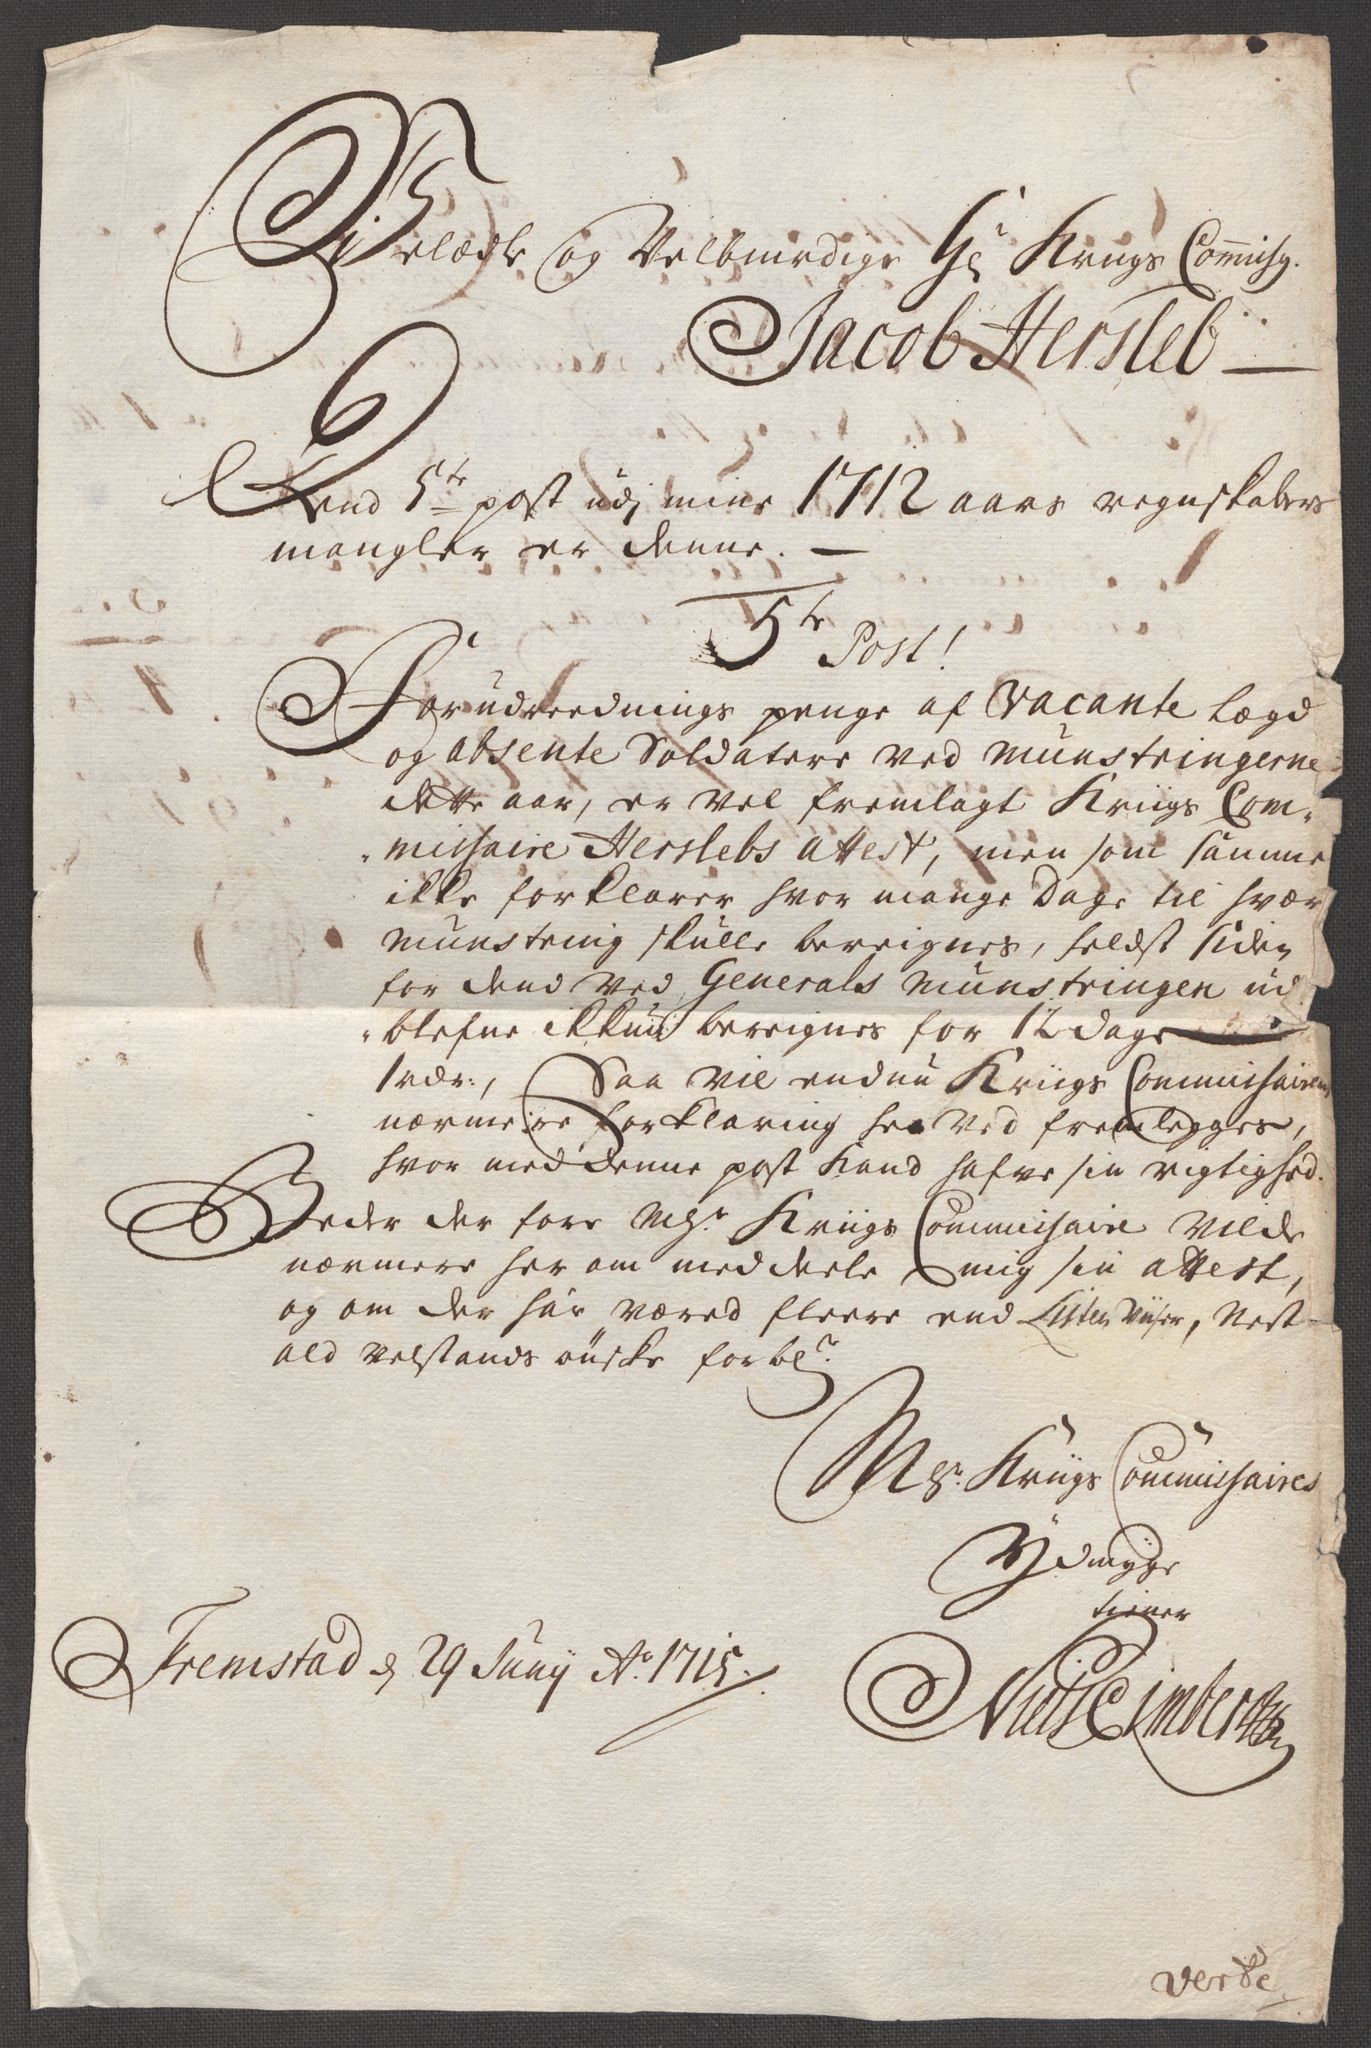 Velædle og Velbiurdige Hr Krigs Commisr.
Jacob Hersleb
Dend 5te post udj mine 1712 aars regnskabers
mangler er denne.
5te Post!
For udreednings penge af vacante Lægd
og absente Soldatere ved munstringerne
dette aar, er vel fremlagt Kriigs Com-
missaire Herslebs attest, men som samme
ikke forklarer hvor mange Dage til hvær
munstring skulle bereignes, heldst siden
for dend ved Generals munstringen ud
blefne ikkun bereignes for 12 dage
hvær, Saa vil endnu Kriigs Commissairens
nærmere forklaring her ved fremlegges,
hvor med denne post kand hafve sin rigtighed.
Beder der fore Mhr. Kriigs Commissaire vilde
nærmere her om meddeele mig sin attest,
og om der har væred fleere end Listen viiser, Nest
ald velstands önske forblr.
Mhr. Kriigs Commissaires
Ydmyge
tiener
Niels Cimber
Fremstad d 29 Junij Ao. 1715.
verte